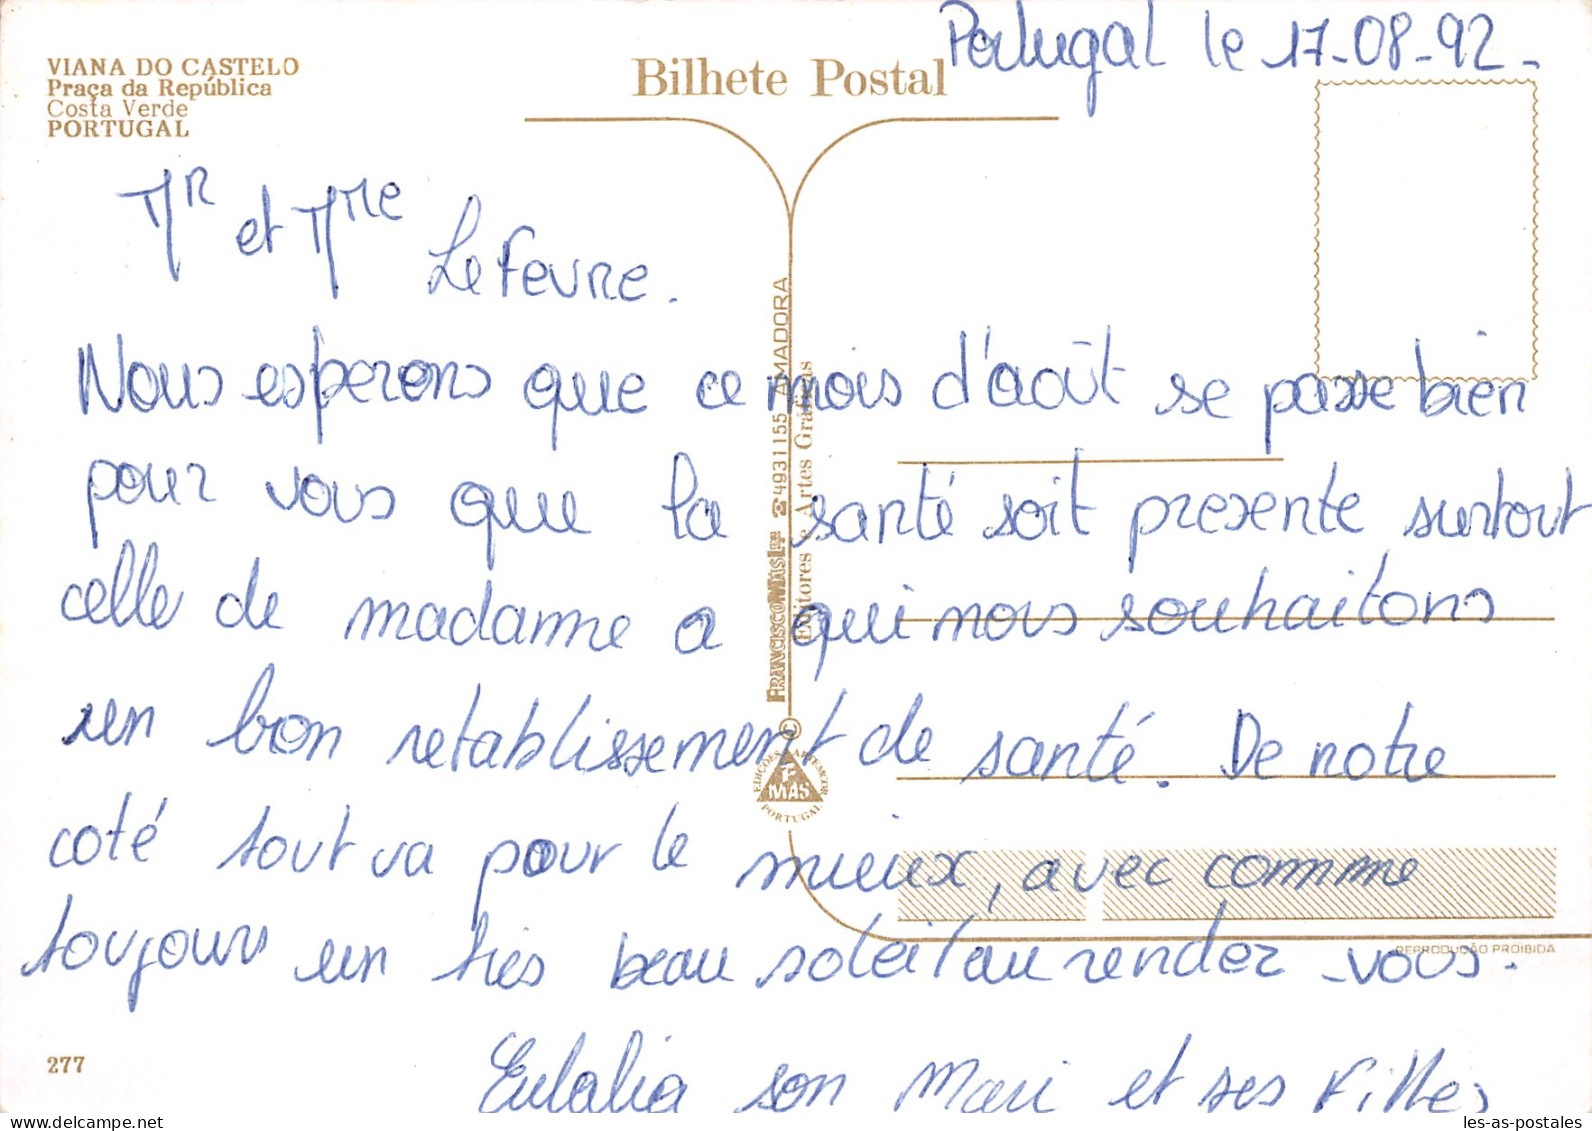 Portugal le 17-08-92-
VIANA DO CASTELO
Praça da República
Costa Verde
PORTUGAL
Bilhete Postal
Mr et Mme Lefevre.
Nous esperons que ce mois d'août se passe bien
pour vous que la santé soit presente surtout
celle de madame a qui nous souhaitons
un bon retablissement de santé. De notre
coté tout va pour le mieux, avec comme
toujours un très beau soleil au rendez-vous.
Eulalia son Mari et ses Filles
FRANCISCO MAS LDA ☎4931155 AMADORA
Editores e Artes Gráficas
©
EDIÇÕES ARTEMCOR
F MAS
PORTUGAL
REPRODUÇÃO PROIBIDA
277
les-as-postales